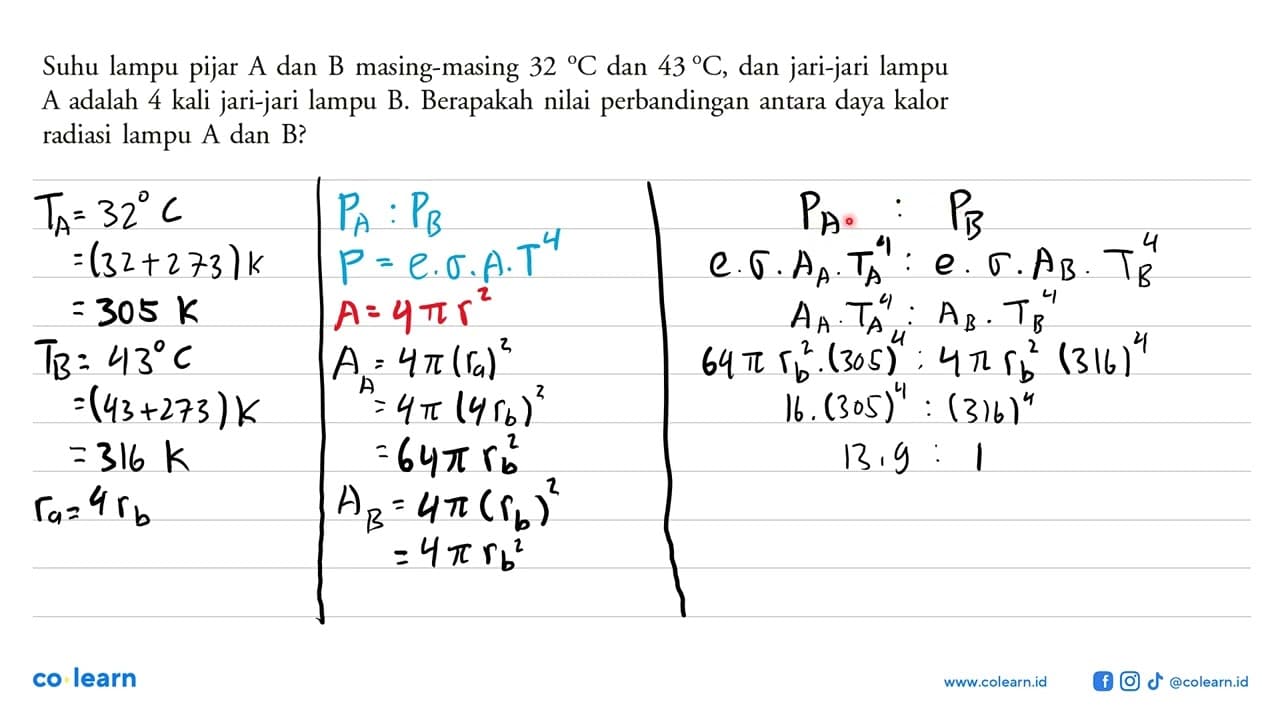 Suhu lampu pijar A dan B masing-masing 32 °C dan 43 °C, dan jari-jari lampu
A adalah 4 kali jari-jari lampu B. Berapakah nilai perbandingan antara daya kalor
radiasi lampu A dan B?
T_A = 32° C
= (32 + 273) K
= 305 K
T_B = 43° C
= (43 + 273) K
= 316 K
r_a = 4 r_b
P_A : P_B
P = e . σ . A . T⁴
A = 4 π r²
A_A = 4π (r_a)²
= 4π (4 r_b)²
= 64 π r_b²
A_B = 4π (r_b)²
= 4 π r_b²
P_A : P_B
e . σ . A_A . T_A⁴ : e . σ . A_B . T_B⁴
A_A . T_A⁴ : A_B . T_B⁴
64 π r_b² . (305)⁴ : 4 π r_b² (316)⁴
16 . (305)⁴ : (316)⁴
13,9 : 1
co learn
www.colearn.id
@colearn.id